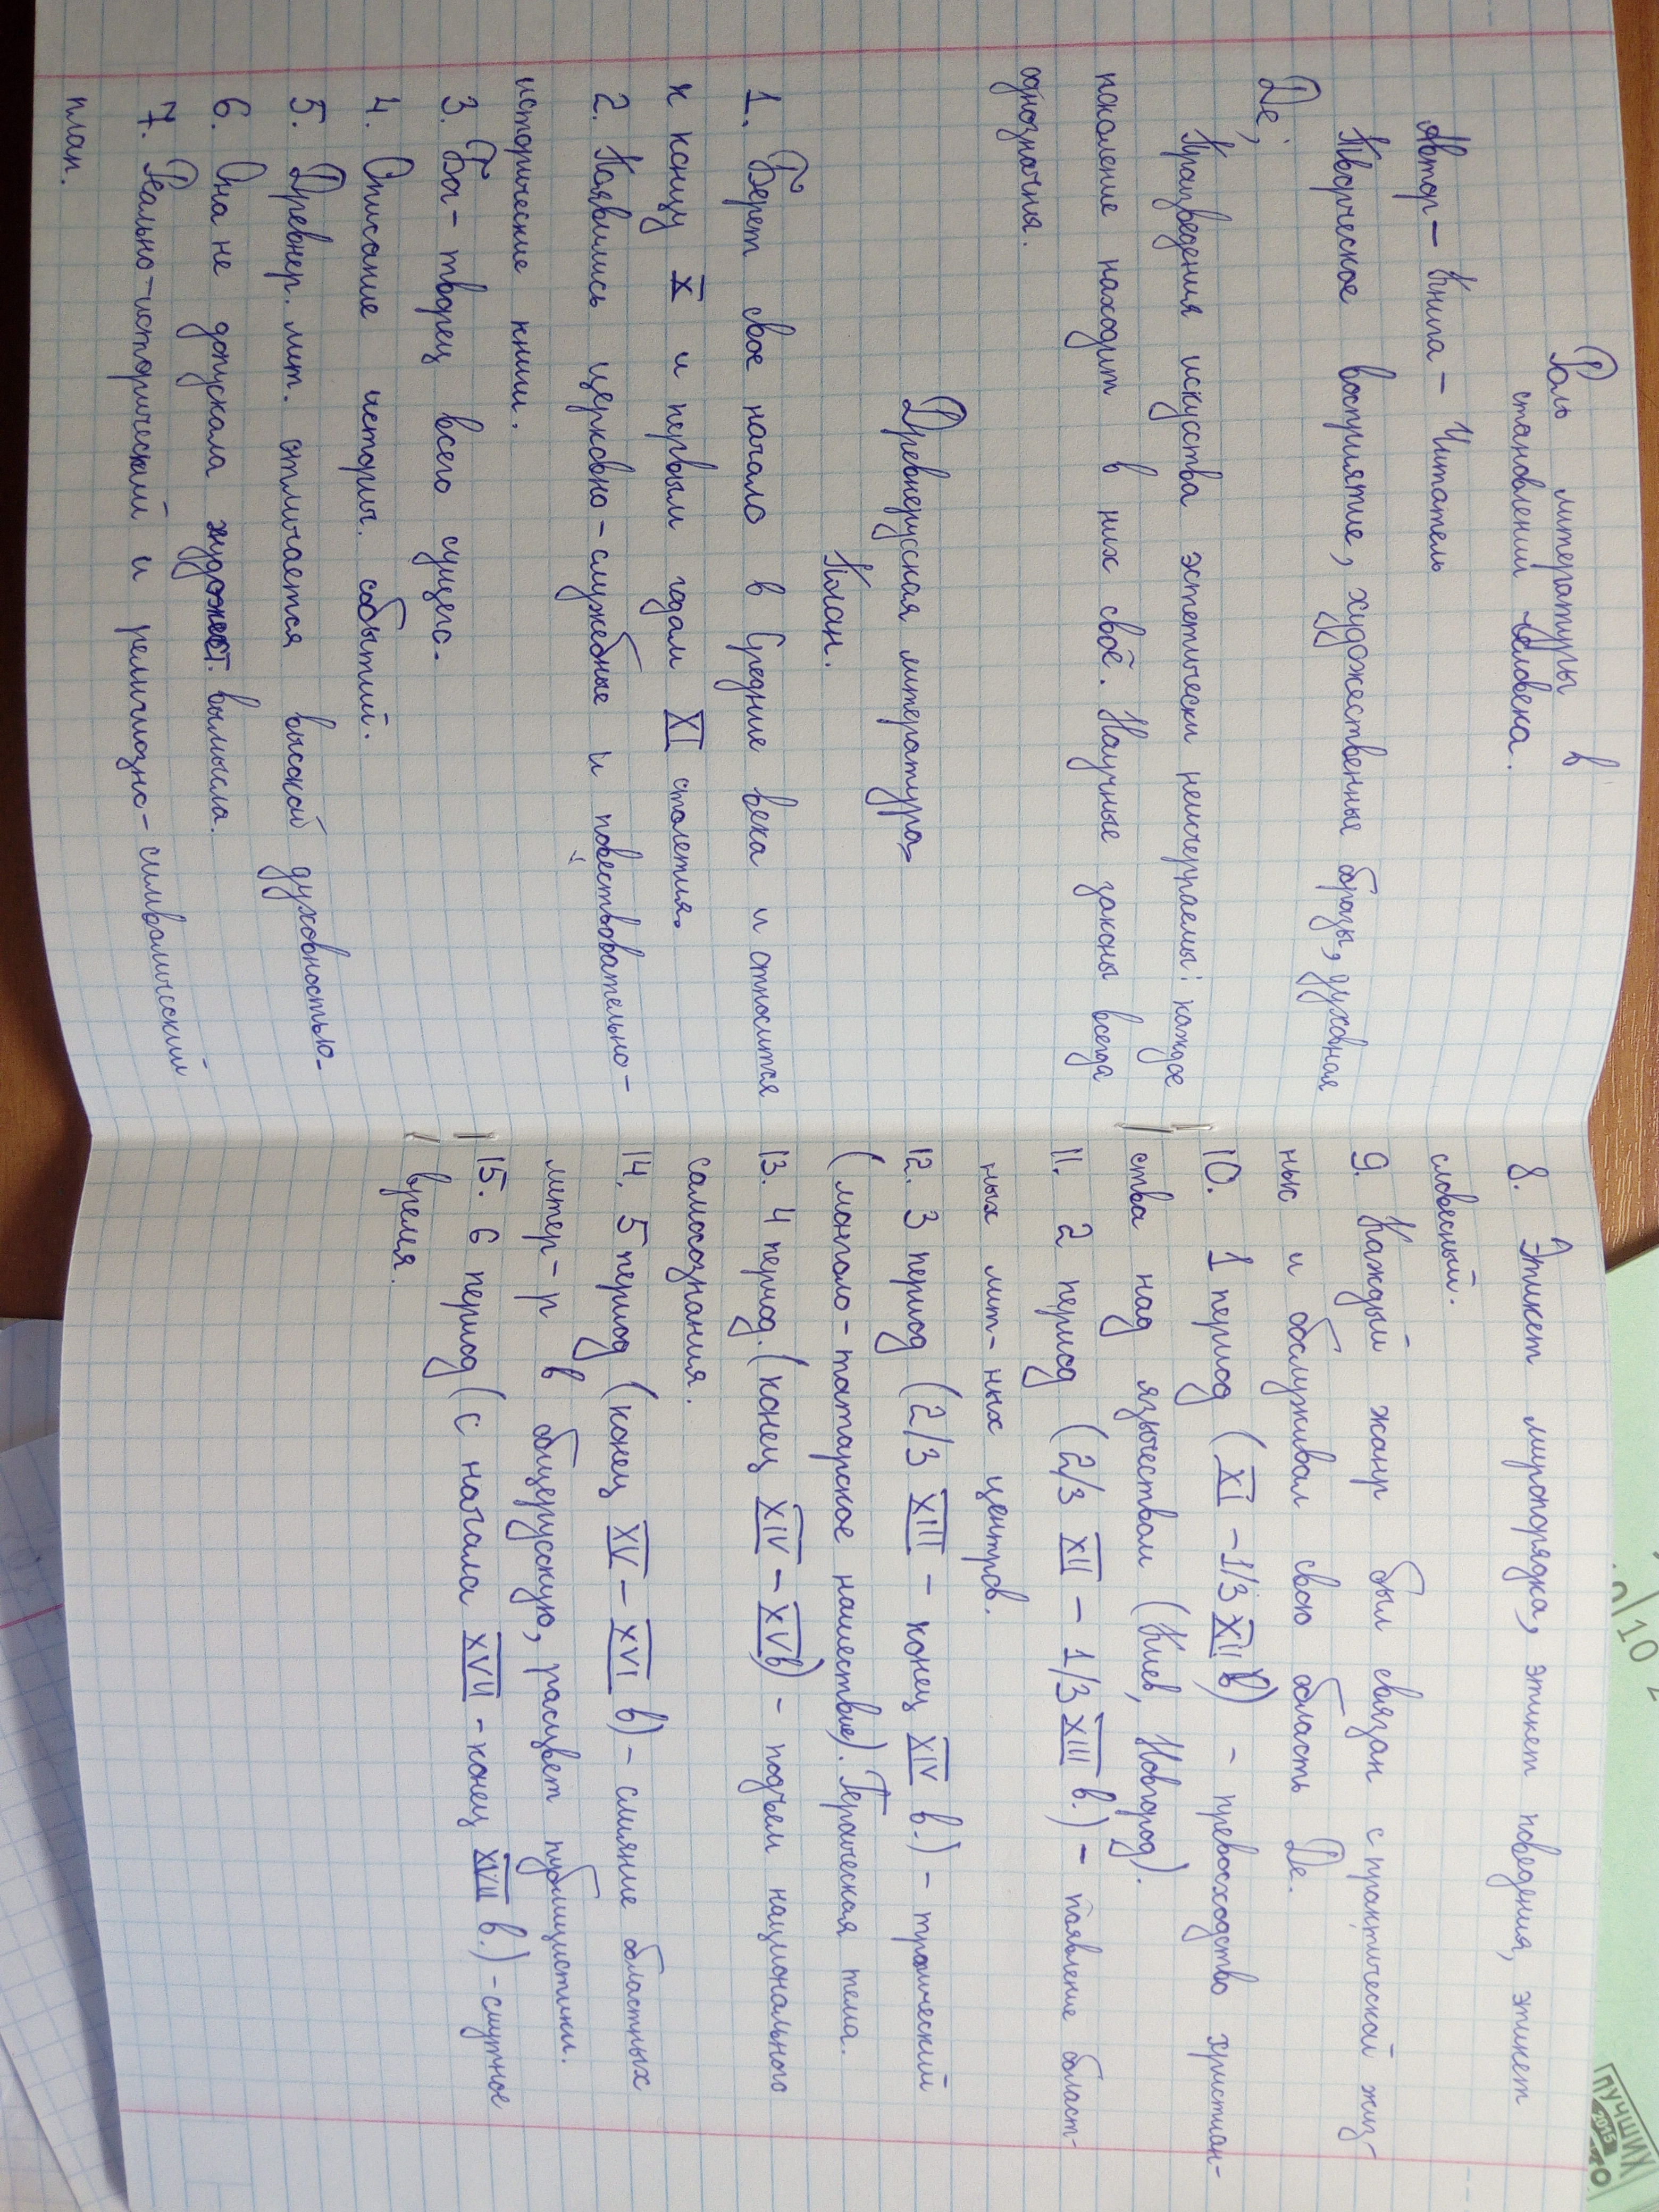 Роль литературы в
становлении человека.
Автор – Книга – Читатель
Творческое восприятие, художественные образы, духовная
Де;
Произведения искуства эстетически неисчерпаемы: каждое
поколение находит в них своё. Научные законы всегда
однозначны.
Древнерусская литература
План.
1. Берет свое начало в Средние века и относится
к концу X и первым годам XI столетия.
2. Появились церковно-служебные и повествовательно-
исторические книги.
3. Бог – творец всего сущего.
4. Описание историч. событий.
5. Древнер. лит. отличается высокой духовностью.
6. Она не допускала художест. вымысла.
7. Реально-исторический и религиозно-символический
план.
8. Этикет миропорядка, этикет поведения, этикет
словесный.
9. Каждый жанр был связан с практической жиз-
нью и обслуживал свою область Де.
10. 1 период (XI – 1/3 XII в) – превосходство христиан-
ства над язычеством (Киев, Новгород).
11. 2 период (2/3 XII – 1/3 XIII в.) – появление област-
ных лит-ных центров.
12. 3 период (2/3 XIII – конец XIV в.) – трагический
(монголо-татарское нашествие). Героическая тема.
13. 4 период. (конец XIV – XV в) – подъем национального
самосознания.
14. 5 период (конец XV – XVI в) – слияние областных
литер-р в общерусскую, расцвет публицистики.
15. 6 период (с начала XVII – конец XVII в.) – смутное
время.
10
2015
ЛУЧШИХ